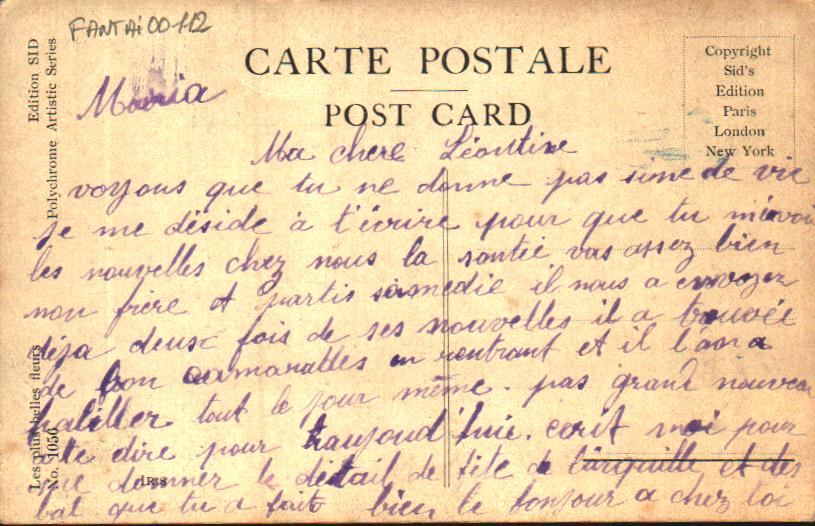 FANTAI 00112
CARTE POSTALE
POST CARD
Copyright
Sid's
Edition
Paris
London
New York
Edition SID
Polychrome Artistic Series
Les plus belles fleurs
No. 1056
IRIS
Maria
Ma chere Léontine
voyons que tu ne donne pas sine de vie
je me déside à t'écrire pour que tu
les nouvelles chez nous la santée vas assez bien
mon frère et partis samedie il nous a envoyez
déja deux fois de ses nouvelles il a trouvée
de bon camaratles en rentrant et il l'ana
habiller tout le jour même. pas grand nouveau
a te dire pour haujoud'huie. ecrit moi pour
me donner le détail de fète de et des
bal que tu a faits bien le bonjour a chez toi